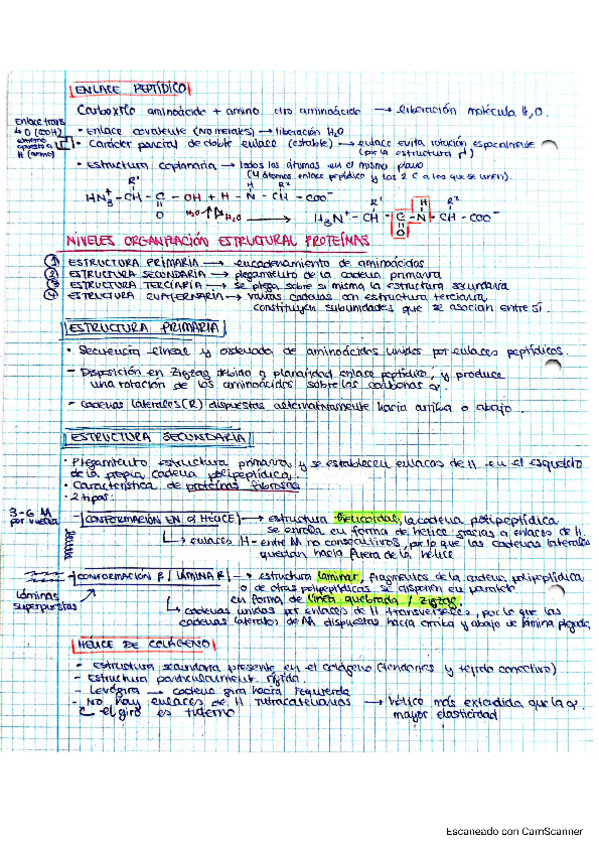 ENLACE PEPTÍDICO
Carboxilo aminoácido + amino otro aminoácido → liberación molécula H₂O.
Enlace trans
O (COOH)
opuesto a
H (amino)
• Enlace covalente (NO metales) → liberación H₂O
• Carácter parcial de doble enlace (estable) → enlace evita rotación
(por la estructura
• Estructura coplanaria → todos los átomos en el mismo plano
(4 átomos enlace peptídico y los 2 C a los que se unen).
R' H R²
HN₃⁺ - CH - C - OH + H - N - CH - COO⁻
O
H₂O H₂O →
R' H R²
H₃N⁺ - CH - C - N - CH - COO⁻
O
NIVELES ORGANIZACIÓN ESTRUCTURAL PROTEÍNAS
① ESTRUCTURA PRIMARIA → encadenamiento de aminoácidos
② ESTRUCTURA SECUNDARIA → plegamiento de la cadena primaria
③ ESTRUCTURA TERCIARIA → se pliega sobre si misma la estructura secundaria
④ ESTRUCTURA CUATERNARIA → varias cadenas con estructura terciaria
constituyen subunidades que se asocian entre sí.
ESTRUCTURA PRIMARIA
• Secuencia lineal y ordenada de aminoácidos unidos por enlaces peptídicos.
- Disposición en zigzag debido a planaridad enlace peptídico, y produce
una rotación de los aminoácidos sobre los carbonos α.
- Cadenas laterales (R) dispuestas alternativamente hacia arriba o abajo.
ESTRUCTURA SECUNDARIA
• Plegamiento estructura primaria y se establecen enlaces de H en el esqueleto
de la propia cadena polipeptídica.
• Característica de proteínas fibrosas
• 2 tipos:
3-6 AA
por vuelta
- CONFORMACIÓN EN α HÉLICE → estructura helicoidal, la cadena polipeptídica
se enrolla en forma de hélice gracias a enlaces de H.
↳ enlaces H- entre AA no consecutivos, por lo que las cadenas laterales
quedan hacia fuera de la hélice
láminas
superpuestas
- CONFORMACIÓN β / LÁMINA β → estructura laminar, fragmentos de la cadena polipeptídica
o de otras polipeptídicas se disponen en paralelo
en forma de línea quebrada / zigzag.
↳ cadenas unidas por enlaces de H transversales, por lo que las
cadenas laterales de AA dispuestas hacia arriba y abajo de lámina plegada
HÉLICE DE COLÁGENO
- Estructura secundaria presente en el colágeno (tendones y tejido conectivo)
- Estructura particularmente rígida.
- Levógira → cadena gira hacia izquierda
- No hay enlaces de H intracatenarios → hélice más extendida que la α.
↳ el giro es mayor elasticidad
Escaneado con CamScanner